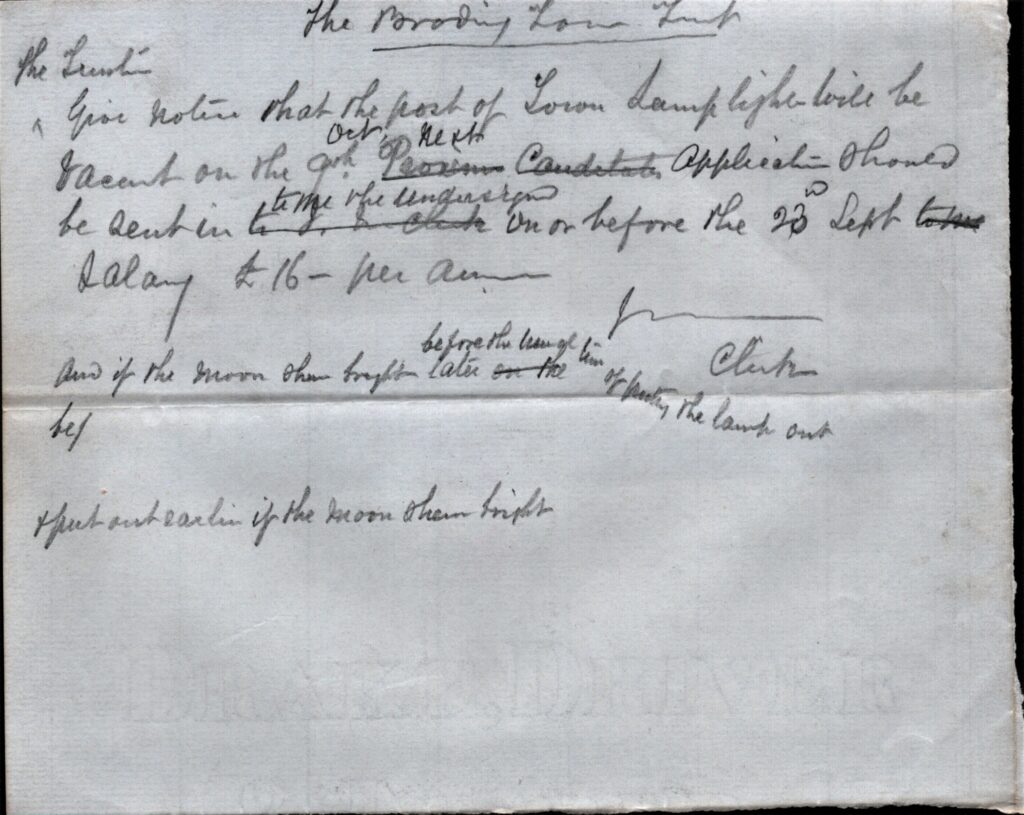 The Brading Town Trust
The Trustees
Give notice that the post of Town Lamplighter will be
Oct. next
vacant on the 9th Persons Candidates Application should
to me the undersigned
be sent in to Clerk on or before the 23rd Sept to me
Salary £16 - per annum
before the usual time
And if the moon shew bright later on the
Clerk
of putting the lamp out
bef
& put out earlier if the moon shew bright